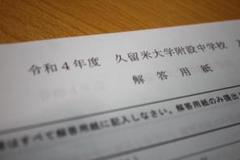 令和4年度 久留米大学附設中学校
解答用紙
はすべて解答用紙に記入しなさい。解答用紙のみ提出